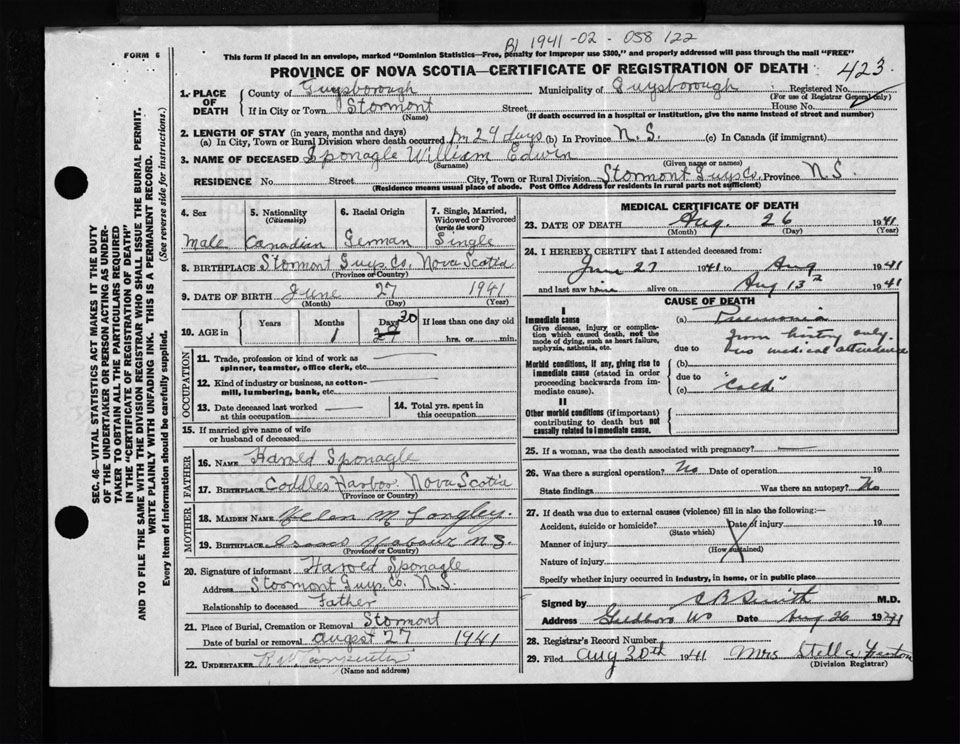 B 1941-02-058122
FORM 6
This form if placed in an envelope, marked "Dominion Statistics—Free, penalty for improper use $300," and properly addressed will pass through the mail "FREE"
PROVINCE OF NOVA SCOTIA—CERTIFICATE OF REGISTRATION OF DEATH
423
1. PLACE OF DEATH
County of Guysborough Municipality of Guysborough Registered No.
(For use of Registrar General only)
If in City or Town Stormont Street House No.
(Name) (If death occurred in a hospital or institution, give the name instead of street and number)
2. LENGTH OF STAY (in years, months and days)
(a) In City, Town or Rural Division where death occurred 1m 29 days (b) In Province N.S. (c) In Canada (if immigrant)
3. NAME OF DECEASED Sponagle William Edwin
(Surname) (Given name or names)
RESIDENCE No. Street City, Town or Rural Division Stormont Guys Co. Province N.S.
(Residence means usual place of abode. Post Office Address for residents in rural parts not sufficient)
4. Sex
Male
5. Nationality
(Citizenship)
Canadian
6. Racial Origin
German
7. Single, Married, Widowed or Divorced
(write the word)
Single
8. BIRTHPLACE Stormont Guys. Co. Nova Scotia
(Province or Country)
9. DATE OF BIRTH June 27 1941
(Month) (Day) (Year)
10. AGE in
Years Months Days If less than one day old
1 29 30 hrs. or min.
OCCUPATION
11. Trade, profession or kind of work as
spinner, teamster, office clerk, etc.
12. Kind of industry or business, as cotton-
mill, lumbering, bank, etc.
13. Date deceased last worked
at this occupation
14. Total yrs. spent in
this occupation
15. If married give name of wife
or husband of deceased
FATHER
16. NAME Harold Sponagle
17. BIRTHPLACE Coddles Harbor Nova Scotia
(Province or Country)
MOTHER
18. MAIDEN NAME Helen M Langley.
19. BIRTHPLACE Isaacs Habour N.S.
(Province or Country)
20. Signature of informant Harold Sponagle
Address Stormont Guys Co. N.S.
Relationship to deceased Father
21. Place of Burial, Cremation or Removal Stormont
Date of burial or removal augest 27 1941
22. UNDERTAKER
(Name and address)
MEDICAL CERTIFICATE OF DEATH
23. DATE OF DEATH Aug. 26 1941
(Month) (Day) (Year)
24. I HEREBY CERTIFY that I attended deceased from:
June 27 1941 to Aug 1941
and last saw him alive on Aug 13th 1941
CAUSE OF DEATH
I
Immediate cause
Give disease, injury or complica-
tion which caused death, not the
mode of dying, such as heart failure,
asphyxia, asthenia, etc.
(a) Pneumonia
from history only
due to no medical attendance
Morbid conditions, if any, giving rise to
immediate cause (stated in order
proceeding backwards from im-
mediate cause).
(b)
due to "Cold"
(c)
II
Other morbid conditions (if important)
contributing to death but not
causally related to immediate cause.
25. If a woman, was the death associated with pregnancy?
26. Was there a surgical operation? No Date of operation 19
State findings Was there an autopsy? No
27. If death was due to external causes (violence) fill in also the following:—
Accident, suicide or homicide? Date of injury 19
(State which)
Manner of injury
(How sustained)
Nature of injury
Specify whether injury occurred in industry, in home, or in public place
Signed by C B Smith M.D.
Address Goldboro NS Date Aug 26 1941
28. Registrar's Record Number
29. Filed Aug 30th 1941 Mrs Stella Fenton
(Division Registrar)
SEC. 46—VITAL STATISTICS ACT MAKES IT THE DUTY
OF THE UNDERTAKER OR PERSON ACTING AS UNDER-
TAKER TO OBTAIN ALL THE PARTICULARS REQUIRED
IN THE "CERTIFICATE OF REGISTRATION OF DEATH"
AND TO FILE THE SAME WITH THE DIVISION REGISTRAR WHO SHALL ISSUE THE BURIAL PERMIT.
WRITE PLAINLY WITH UNFADING INK. THIS IS A PERMANENT RECORD.
Every item of information should be carefully supplied. (See reverse side for instructions.)